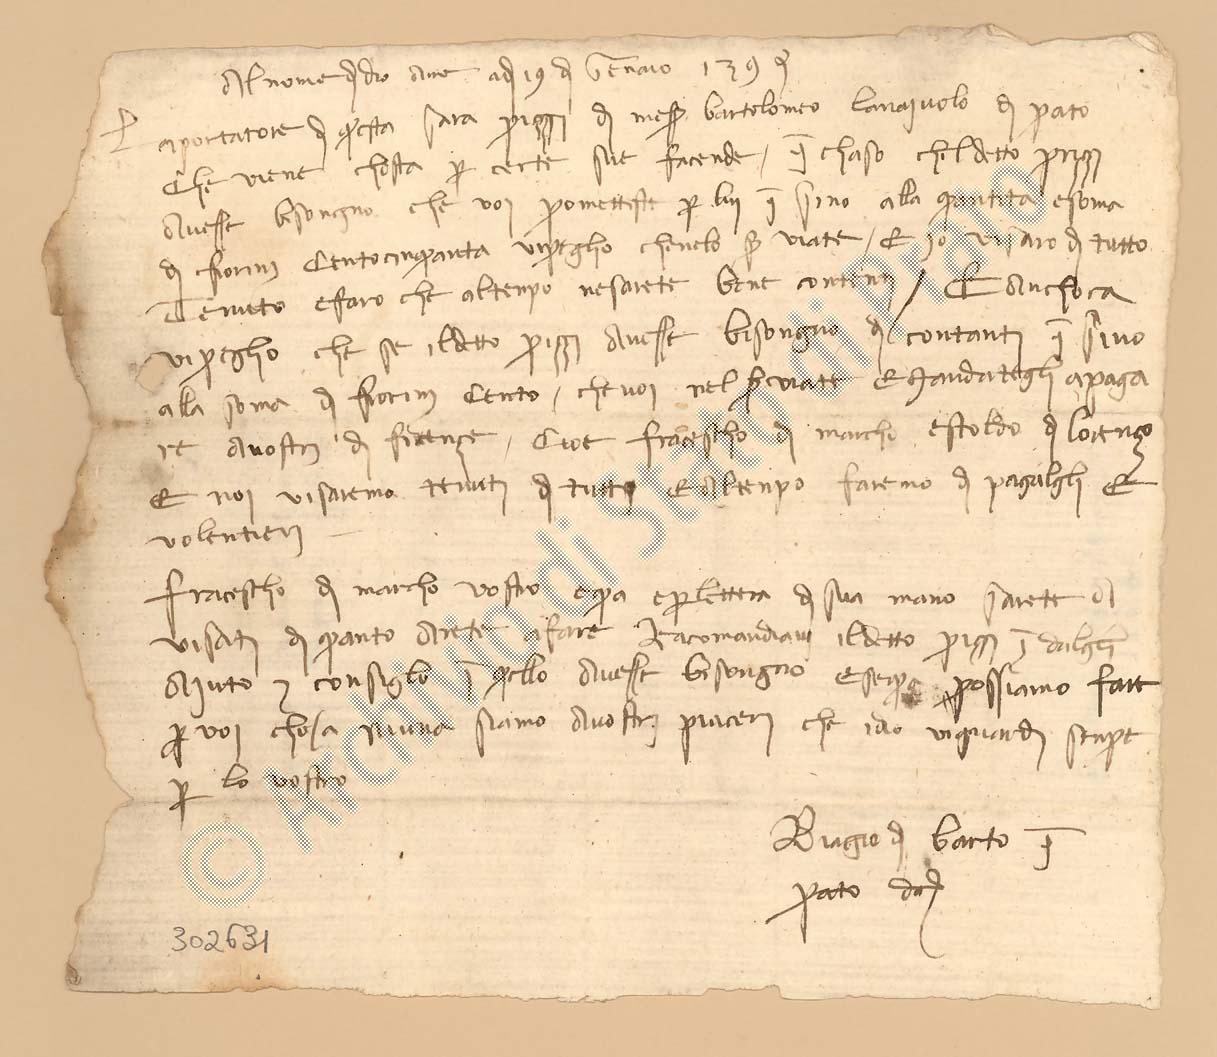 Al nome di dio ame adi 19 di Gennaio 139
aportatore di questa sara pighi di messer bartolomeo lanaiuolo di prato
che viene chosta per certe sue facende / in chaso cheldetto
avesse bisongno che voi promettiste per lui in sino alla quantita e soma
di fiorini centocinquanta vi pregho chenelo serviate / E io vi saro di tutto
tenuto e faro che altenpo nesarete bene contenti / E anchora
vi pregho che se ildetto avesse bisongno di contanti in sino
alla soma di fiorini cento / che voi nel serviate e mandateghli apaga
re avostri di firenze / cioe francescho di marcho e stoldo di lorenzo
E noi visaremo tenuti di tutto e altenpo faremo di pagalghi E
volentieri
francescho di marcho vostro e per lettera di sua mano sarete
visati di quanto avete affare Racomandiavi ildetto in dalghi
aiuto e consiglo in quello avesse bisongno possiamo fare
per voi chosa niuna siamo avostri piaceri che idio viguardi senpre
per lo vostro
Biagio di barto in
prato
302631
© Archivio di Stato di Prato